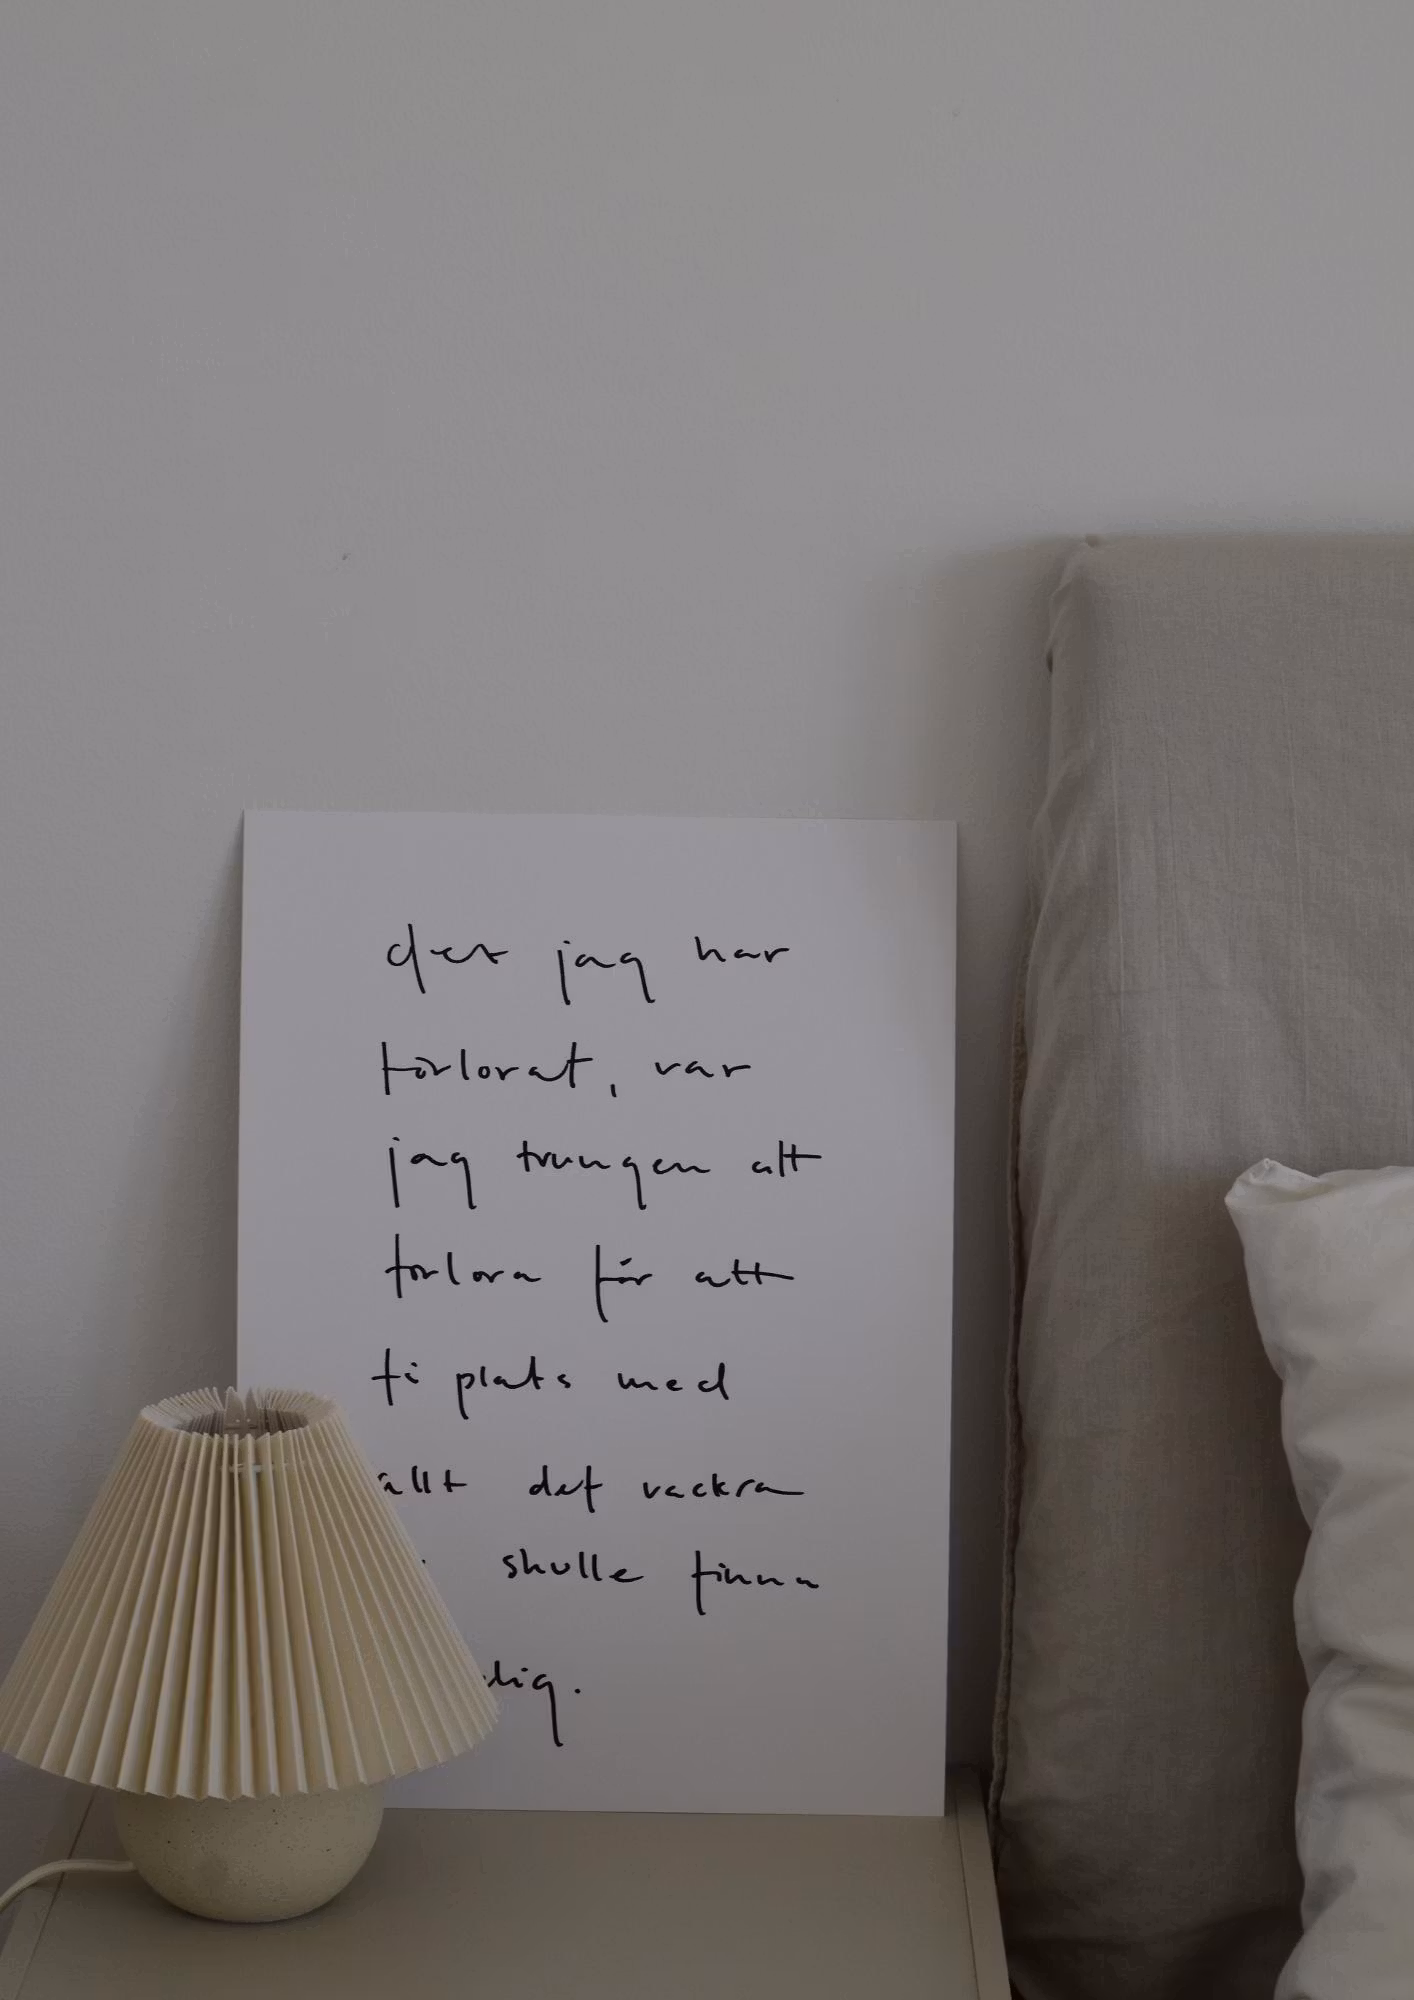 det jag har
förlorat, var
jag trungen att
förlora för att
få plats med
allt det vackra
skulle finna
dig.